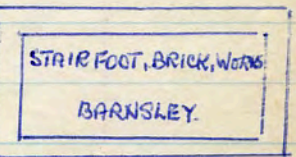 STAIRFOOT, BRICK, WORKS
BARNSLEY.